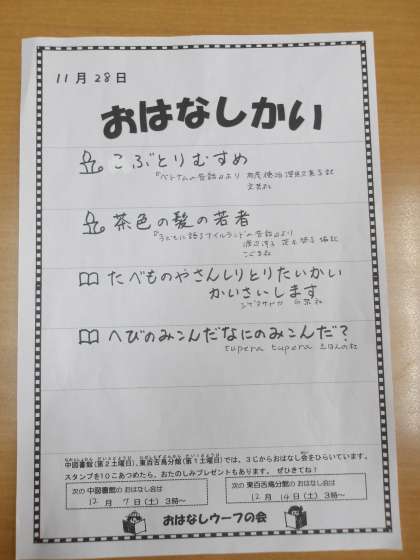 11月28日
おはなしかい
こぶとりむすめ
『ベトナムの昔話』より
文芸社
茶色の髪の若者
『子どもに語るアイルランドの昔話』より
こぐま社
たべものやさんしりとりたいかい
かいさいします
シゲタサヤカ 白泉社
へびのみこんだなにのみこんだ?
tupera tupera えほんの杜
中図書館(第2土曜日)、東百舌鳥分館(第1土曜日)では、3じからおはなし会をひらいています。
スタンプを10こあつめたら、おたのしみプレゼントもあります。 ぜひきてね!
次の 中図書館の おはなし会は
12月 7日(土) 3時~
次の 東百舌鳥分館の おはなし会は
12月 14日(土) 3時~
おはなしウーフの会